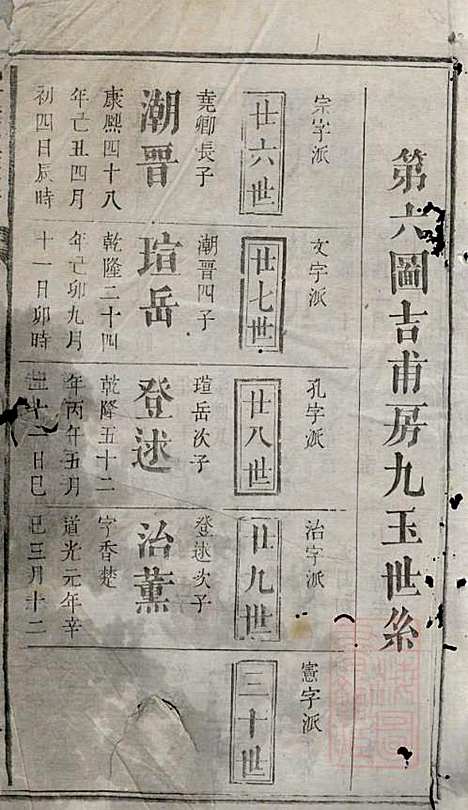 第六圖吉甫房九玉世系
宗字派
廿六世
堯卿長子
潮晋
康熙四十八
年己丑四月
初四日辰時
文字派
廿七世
潮晋四子
瑄岳
乾隆二十四
年己卯九月
十一日卯時
孔字派
廿八世
瑄岳次子
登逑
乾隆五十二
年丙午五月
二十一日巳
治字派
廿九世
登逑次子
治薰
字香楚
道光元年辛
巳三月十二
憲字派
三十世